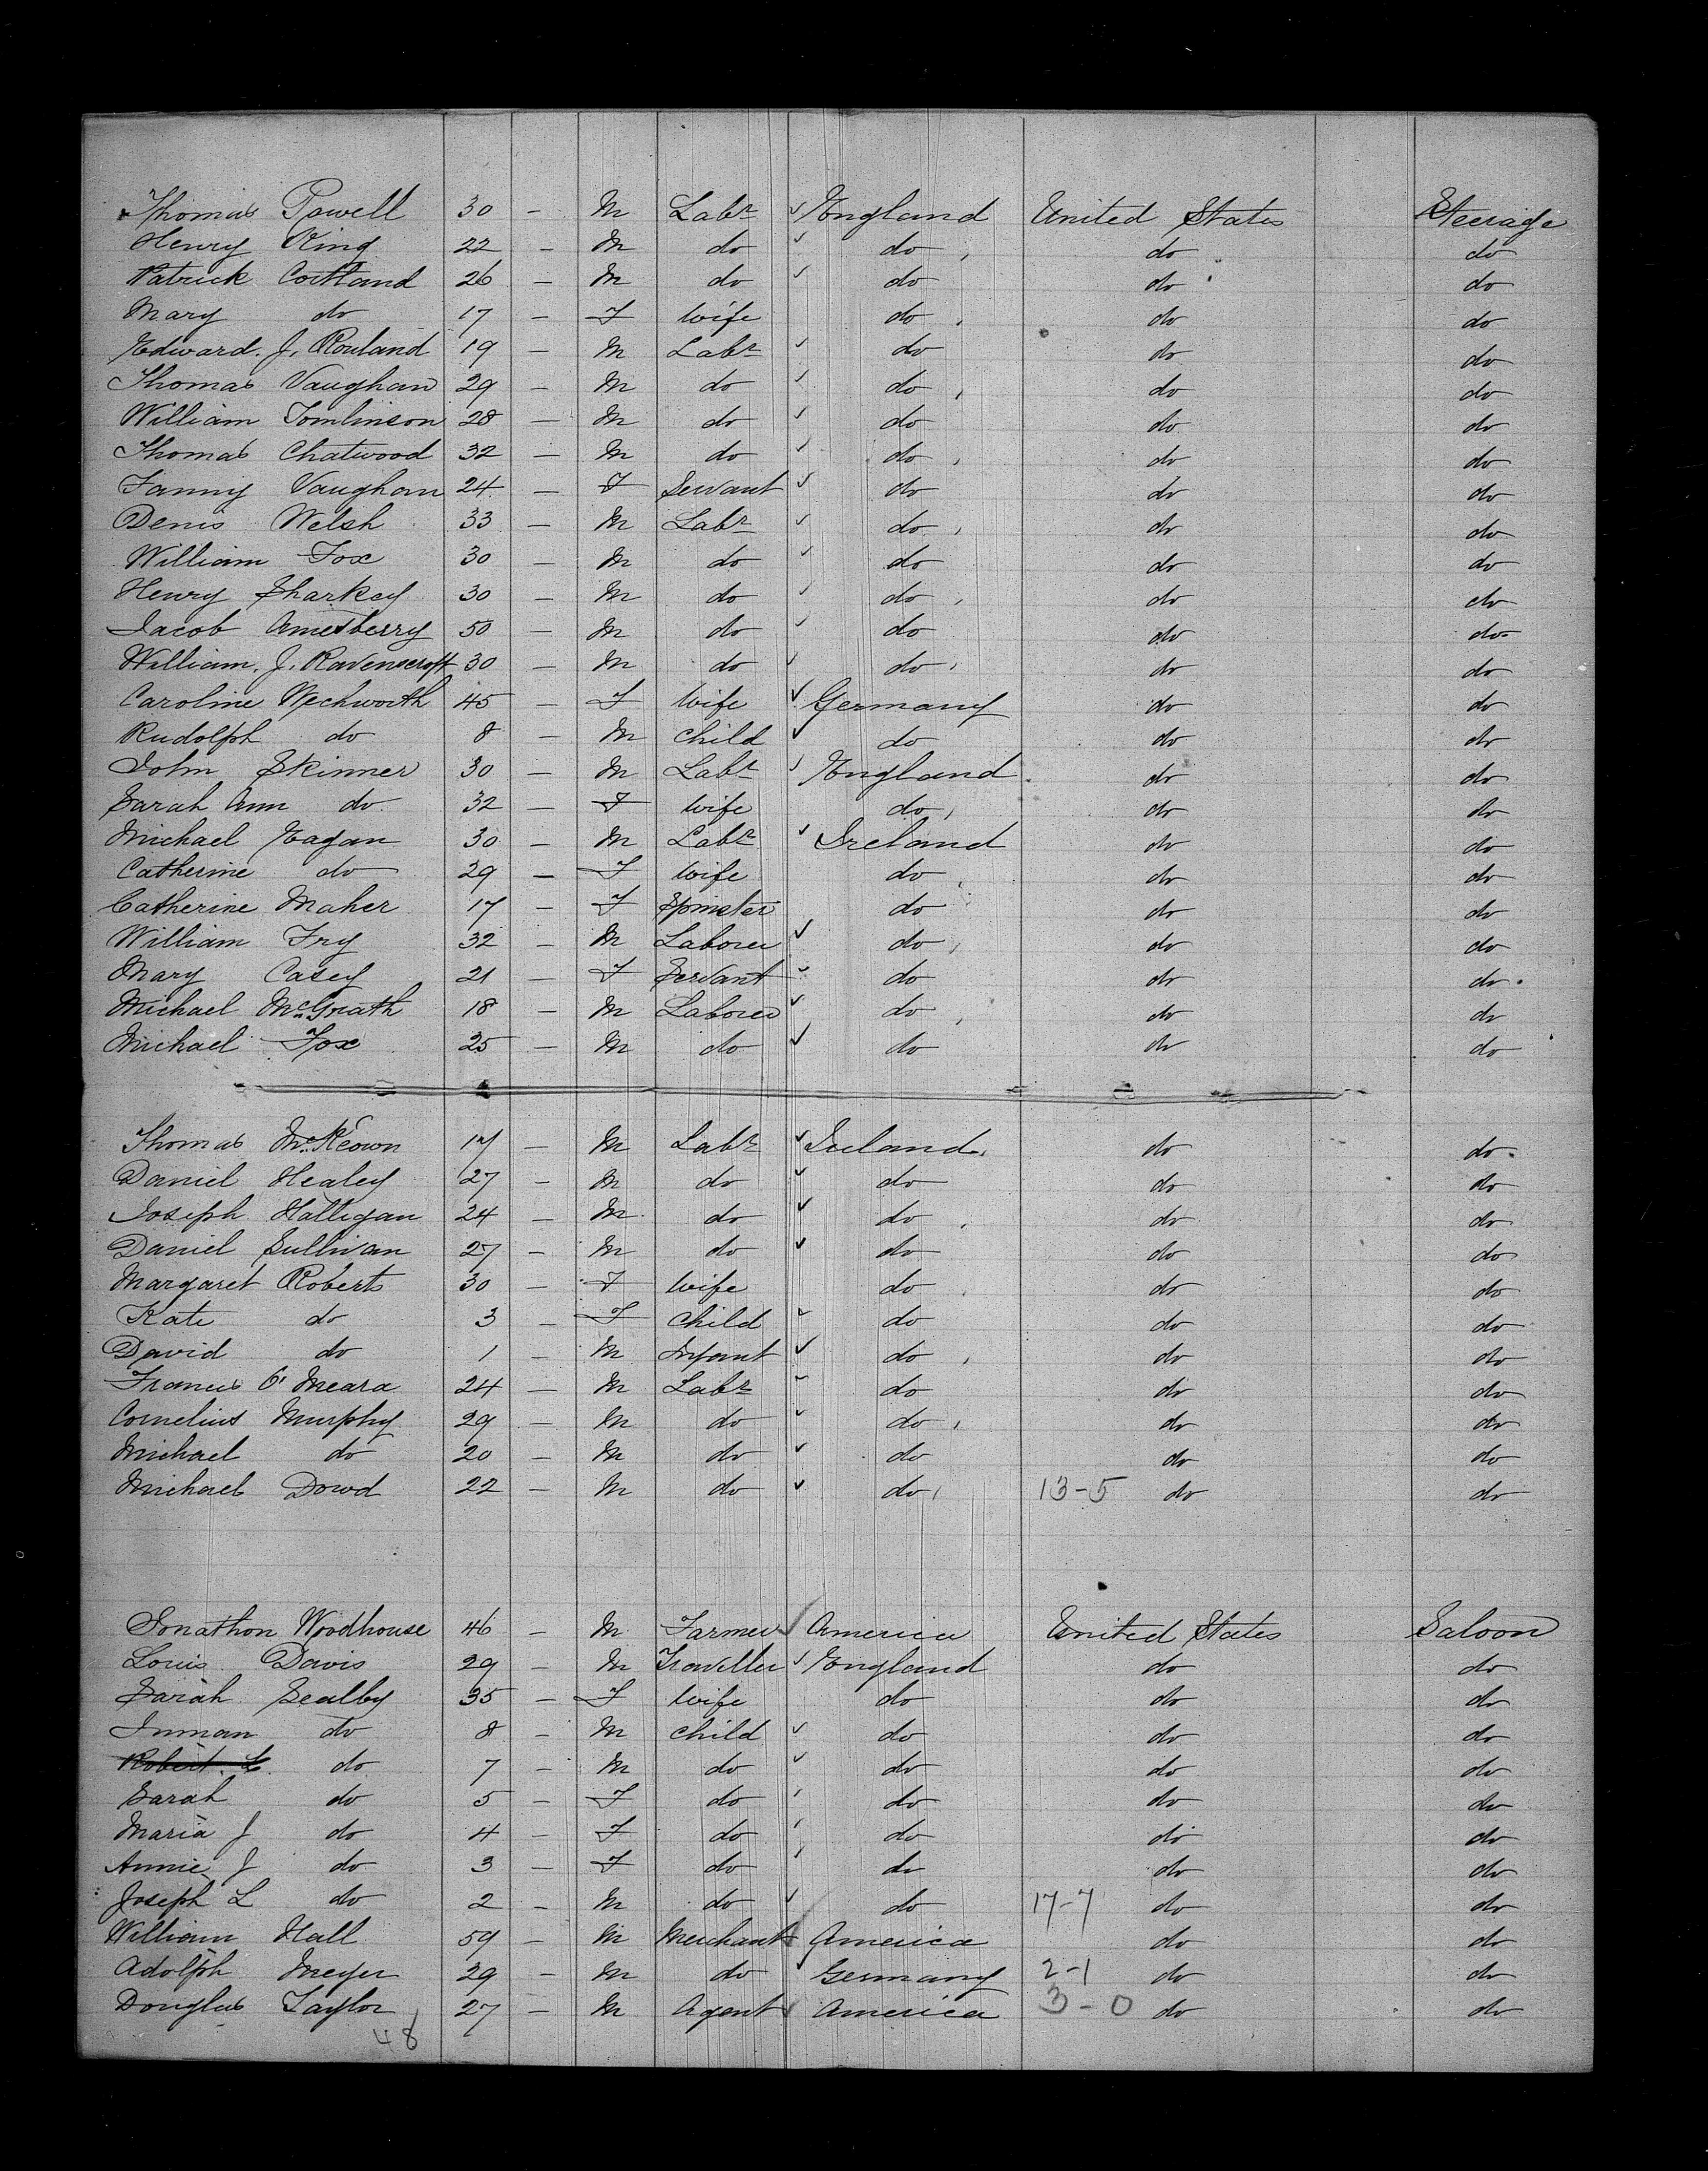 Thomas Powell 30 - M Labr ✓ England United States Steerage
Henry King 22 - M do ✓ do do do
Patrick Cortland 26 - M do ✓ do do do
Mary do 17 - F Wife do do do
Edward. J. Rowland 19 - M Labr ✓ do do do
Thomas Vaughan 29 - M do ✓ do do do
William Tomlinson 28 - M do ✓ do do do
Thomas Chatwood 32 - M do ✓ do do do
Fanny Vaughan 24 - F Servant ✓ do do do
Denis Welsh 33 - M Labr ✓ do do do
William Fox 30 - M do ✓ do do do
Henry Sharkey 30 - M do ✓ do do do
Jacob Amesberry 50 - M do ✓ do do do
William. J. Ravenscroft 30 - M do ✓ do do do
Caroline Wechworth 45 - F Wife ✓ Germany do do
Rudolph do 8 - M Child ✓ do do do
John Skinner 30 - M Labr ✓ England do do
Sarah Ann do 32 - F Wife do do do
Michael Eagan 30 - M Labr ✓ Ireland do do
Catherine do 29 - F Wife do do do
Catherine Maher 17 - F Spinster do do do
William Fry 32 - M Laborer ✓ do do do
Mary Casey 21 - F Servant ✓ do do do
Michael McGrath 18 - M Laborer ✓ do do do
Michael Fox 25 - M do ✓ do do do
Thomas McKeown 17 - M Labr ✓ Ireland do do
Daniel Healey 27 - M do ✓ do do do
Joseph Halligan 24 - M do ✓ do do do
Daniel Sullivan 27 - M do ✓ do do do
Margaret Roberts 30 - F Wife do do do
Kate do 3 - F Child ✓ do do do
David do 1 - M Infant ✓ do do do
Francis O'Meara 24 - M Labr ✓ do do do
Cornelius Murphy 29 - M do ✓ do do do
Michael do 20 - M do ✓ do do do
Michael Dowd 22 - M do ✓ do 13-5 do do
Jonathon Woodhouse 46 - M Farmer ✓ America United States Saloon
Louis Davis 29 - M Traveller ✓ England do do
Sarah Sealby 35 - F Wife do do do
Inman do 8 - M Child ✓ do do do
Robert. L. do 7 - M do ✓ do do do
Sarah do 5 - F do ✓ do do do
Maria J do 4 - F do ✓ do do do
Annie J do 3 - F do ✓ do do do
Joseph L do 2 - M do ✓ do 17-7 do do
William Hall 59 - M Merchant ✓ America do do
Adolph Meyer 29 - M do ✓ Germany 2-1 do do
Douglas Taylor 27 - M Agent ✓ America 3-0 do do
48